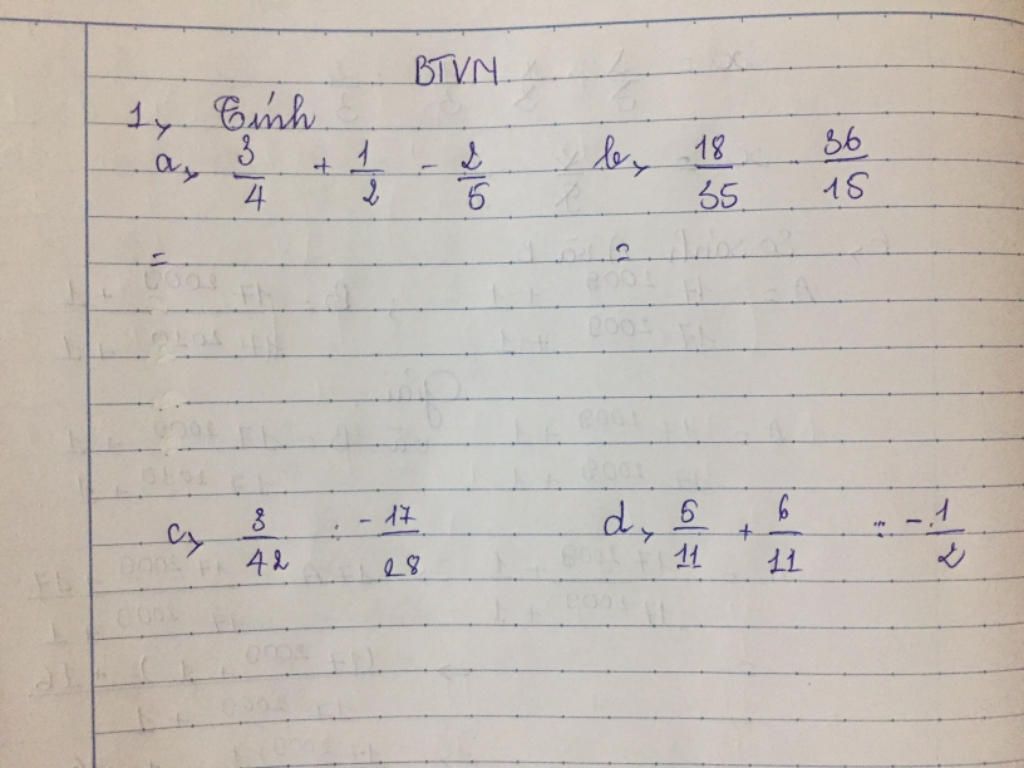 BTVN
1, Tính
a, 3/4 + 1/2 - 2/5    b, 18/35 . 36/15
=    =
c, 3/42 : -17/28    d, 5/11 + 6/11 : -1/2